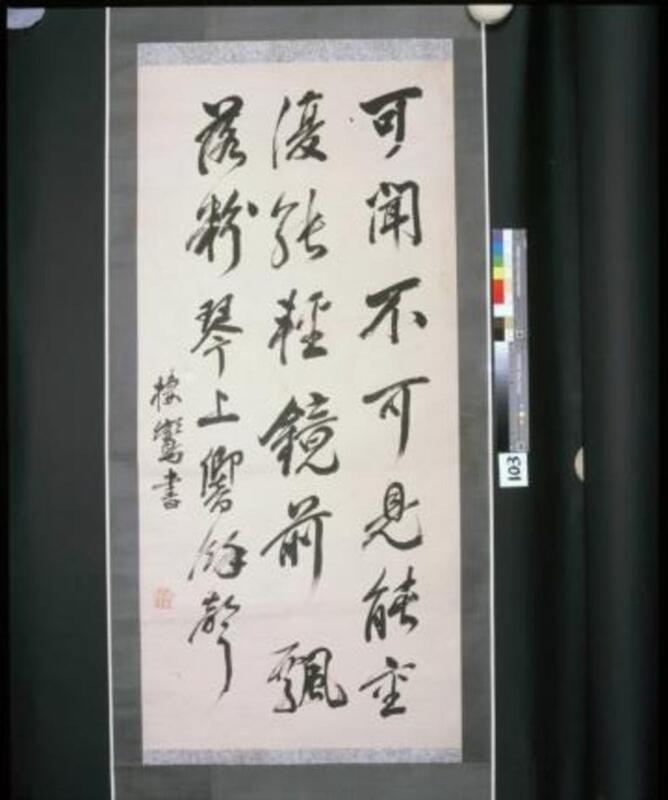 可聞不可見能重
復能輕鏡前飄
落粉琴上響餘聲
棲鸞書
103